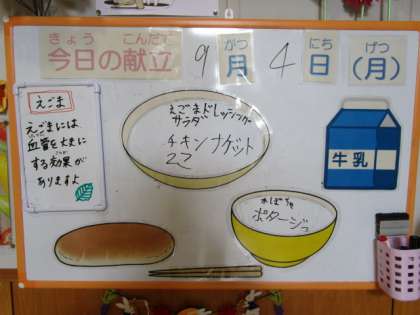 きょう こんだて
今日の献立 9 がつ 月 4 にち 日 げつ (月)
えごま
えごまには
血管を丈夫に
する効果が
ありますよ
えごまドレッシング
サラダ
チキンナゲット
2コ
牛乳
かぼちゃ
ポタージュ